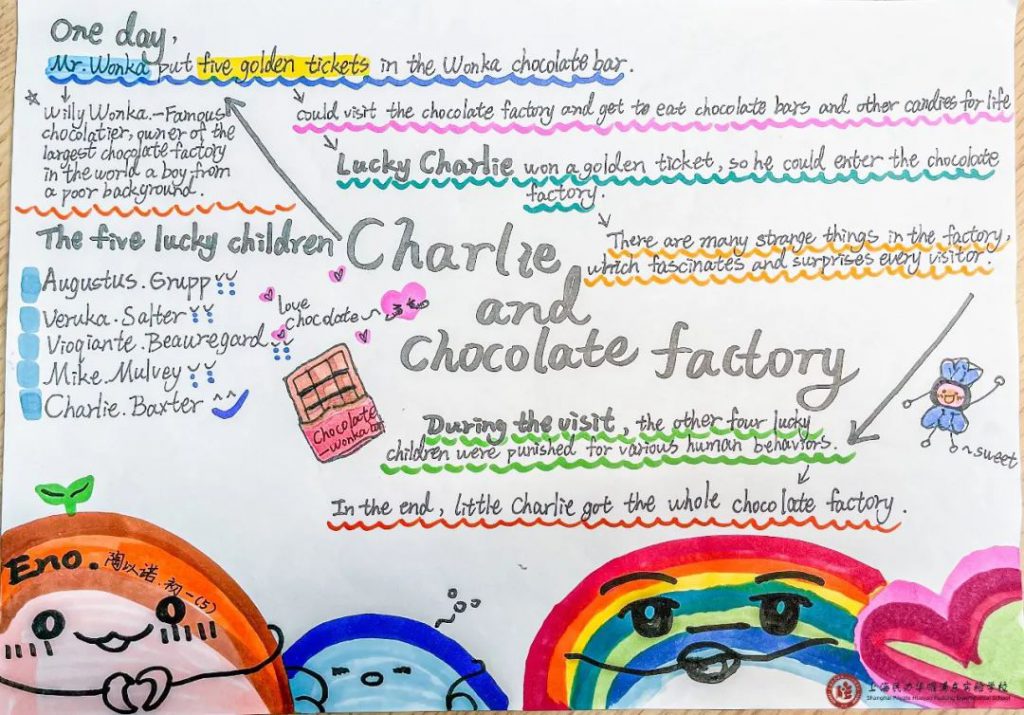 One day,
Mr. Wonka put five golden tickets in the Wonka chocolate bar.
Willy Wonka.-Famous
chocolatier, owner of the
largest chocolate factory
in the world a boy from
a poor background.
could visit the chocolate factory and get to eat chocolate bars and other candies for life
Lucky Charlie won a golden ticket, so he could enter the chocolate
factory.
There are many strange things in the factory,
which fascinates and surprises every visitor.
The five lucky children
Augustus.Grupp
Veruka.Salter
Vioqiante.Beauregard
Mike.Mulvey
Charlie.Baxter
love
chocolate~
Charlie
and
chocolate factory
Chocolate
-Wonka bar
During the visit, the other four lucky
children were punished for various human behaviors.
~sweet
In the end, little Charlie got the whole chocolate factory.
Eno.陶以诺.初一(5)
上海民办华曜浦东实验学校
Shanghai Private Huayao Pudong Experimental School